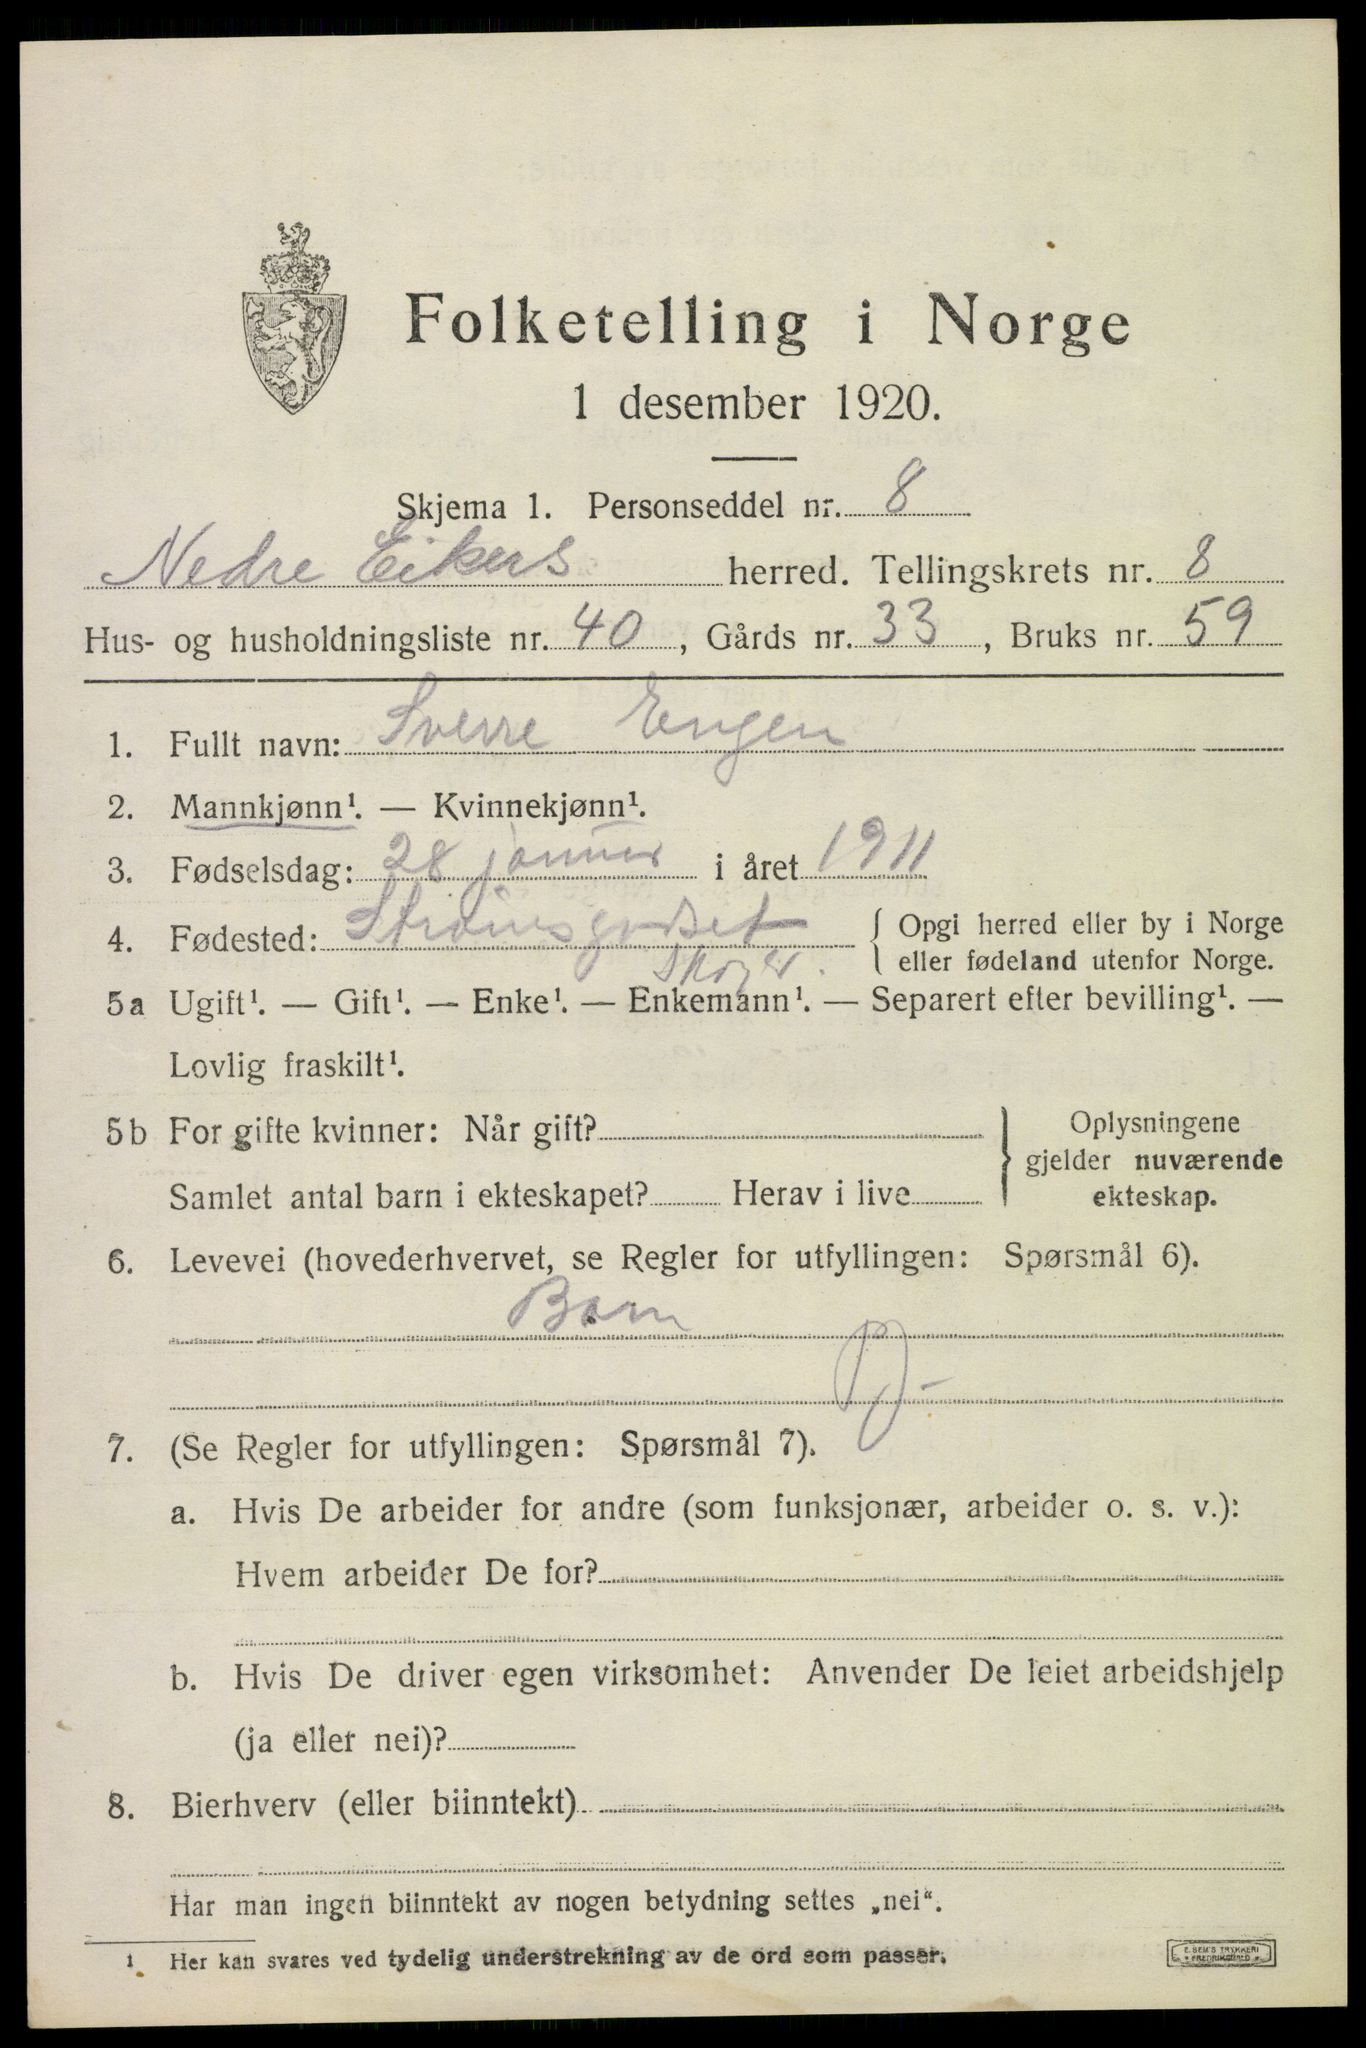 Folketelling i Norge
1 desember 1920.
Skjema 1. Personseddel nr. 8
Nedre Eikers herred. Tellingskrets nr. 8
Hus- og husholdningsliste nr. 40, Gårds nr. 33, Bruks nr. 59
1. Fullt navn: Sverre Engen
2. Mannkjønn¹. — Kvinnekjønn¹.
3. Fødselsdag: 28 januar i året 1911
4. Fødested: Strømsgodset { Opgi herred eller by i Norge
eller fødeland utenfor Norge.
Skoger.
5a Ugift¹. — Gift¹. — Enke¹. — Enkemann¹. — Separert efter bevilling¹. —
Lovlig fraskilt¹.
5b For gifte kvinner: Når gift?
Samlet antal barn i ekteskapet? Herav i live
} Oplysningene
gjelder nuværende
ekteskap.
6. Levevei (hovederhvervet, se Regler for utfyllingen: Spørsmål 6).
Barn
7. (Se Regler for utfyllingen: Spørsmål 7).
a. Hvis De arbeider for andre (som funksjonær, arbeider o. s. v.):
Hvem arbeider De for?
b. Hvis De driver egen virksomhet: Anvender De leiet arbeidshjelp
(ja eller nei)?
8. Bierhverv (eller biinntekt)
Har man ingen biinntekt av nogen betydning settes „nei“.
1 Her kan svares ved tydelig understrekning av de ord som passer.
E. SEM'S TRYKKERI
FREDRIKSHALD